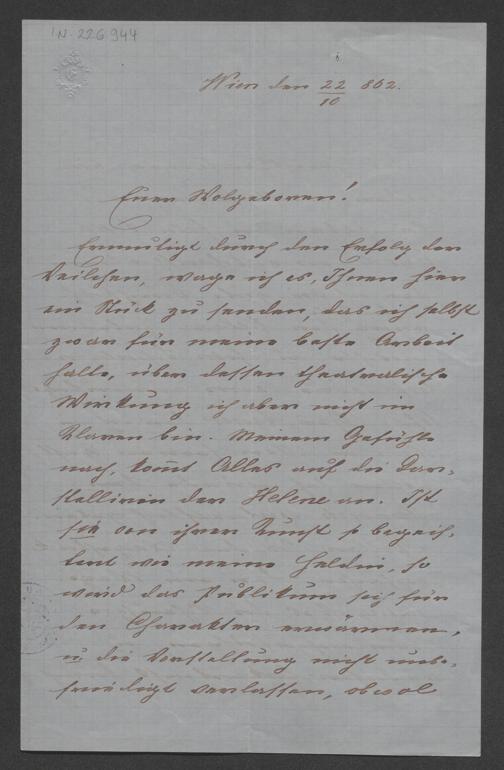 IN. 226.944
Wien den 22/10 862.
Euer Wolgeboren!
Ermutigt durch den Erfolg der
Veilchen, wage ich es, Ihnen hier
ein Stück zu senden, das ich selbst
zwar für meine beste Arbeit
halte, über dessen theatralische
Wirkung ich aber nicht im
Klaren bin. Meinem Gefühle
nach, kom̅t Alles auf die Dar-
stellerin der Helene an. Ist
sie von ihrer Kunst so begeis-
tert wie meine Heldin, so
wird das Publikum sich für
den Charakter erwärmen,
u die Vorstellung nicht unbe-
friedigt verlassen, obwol